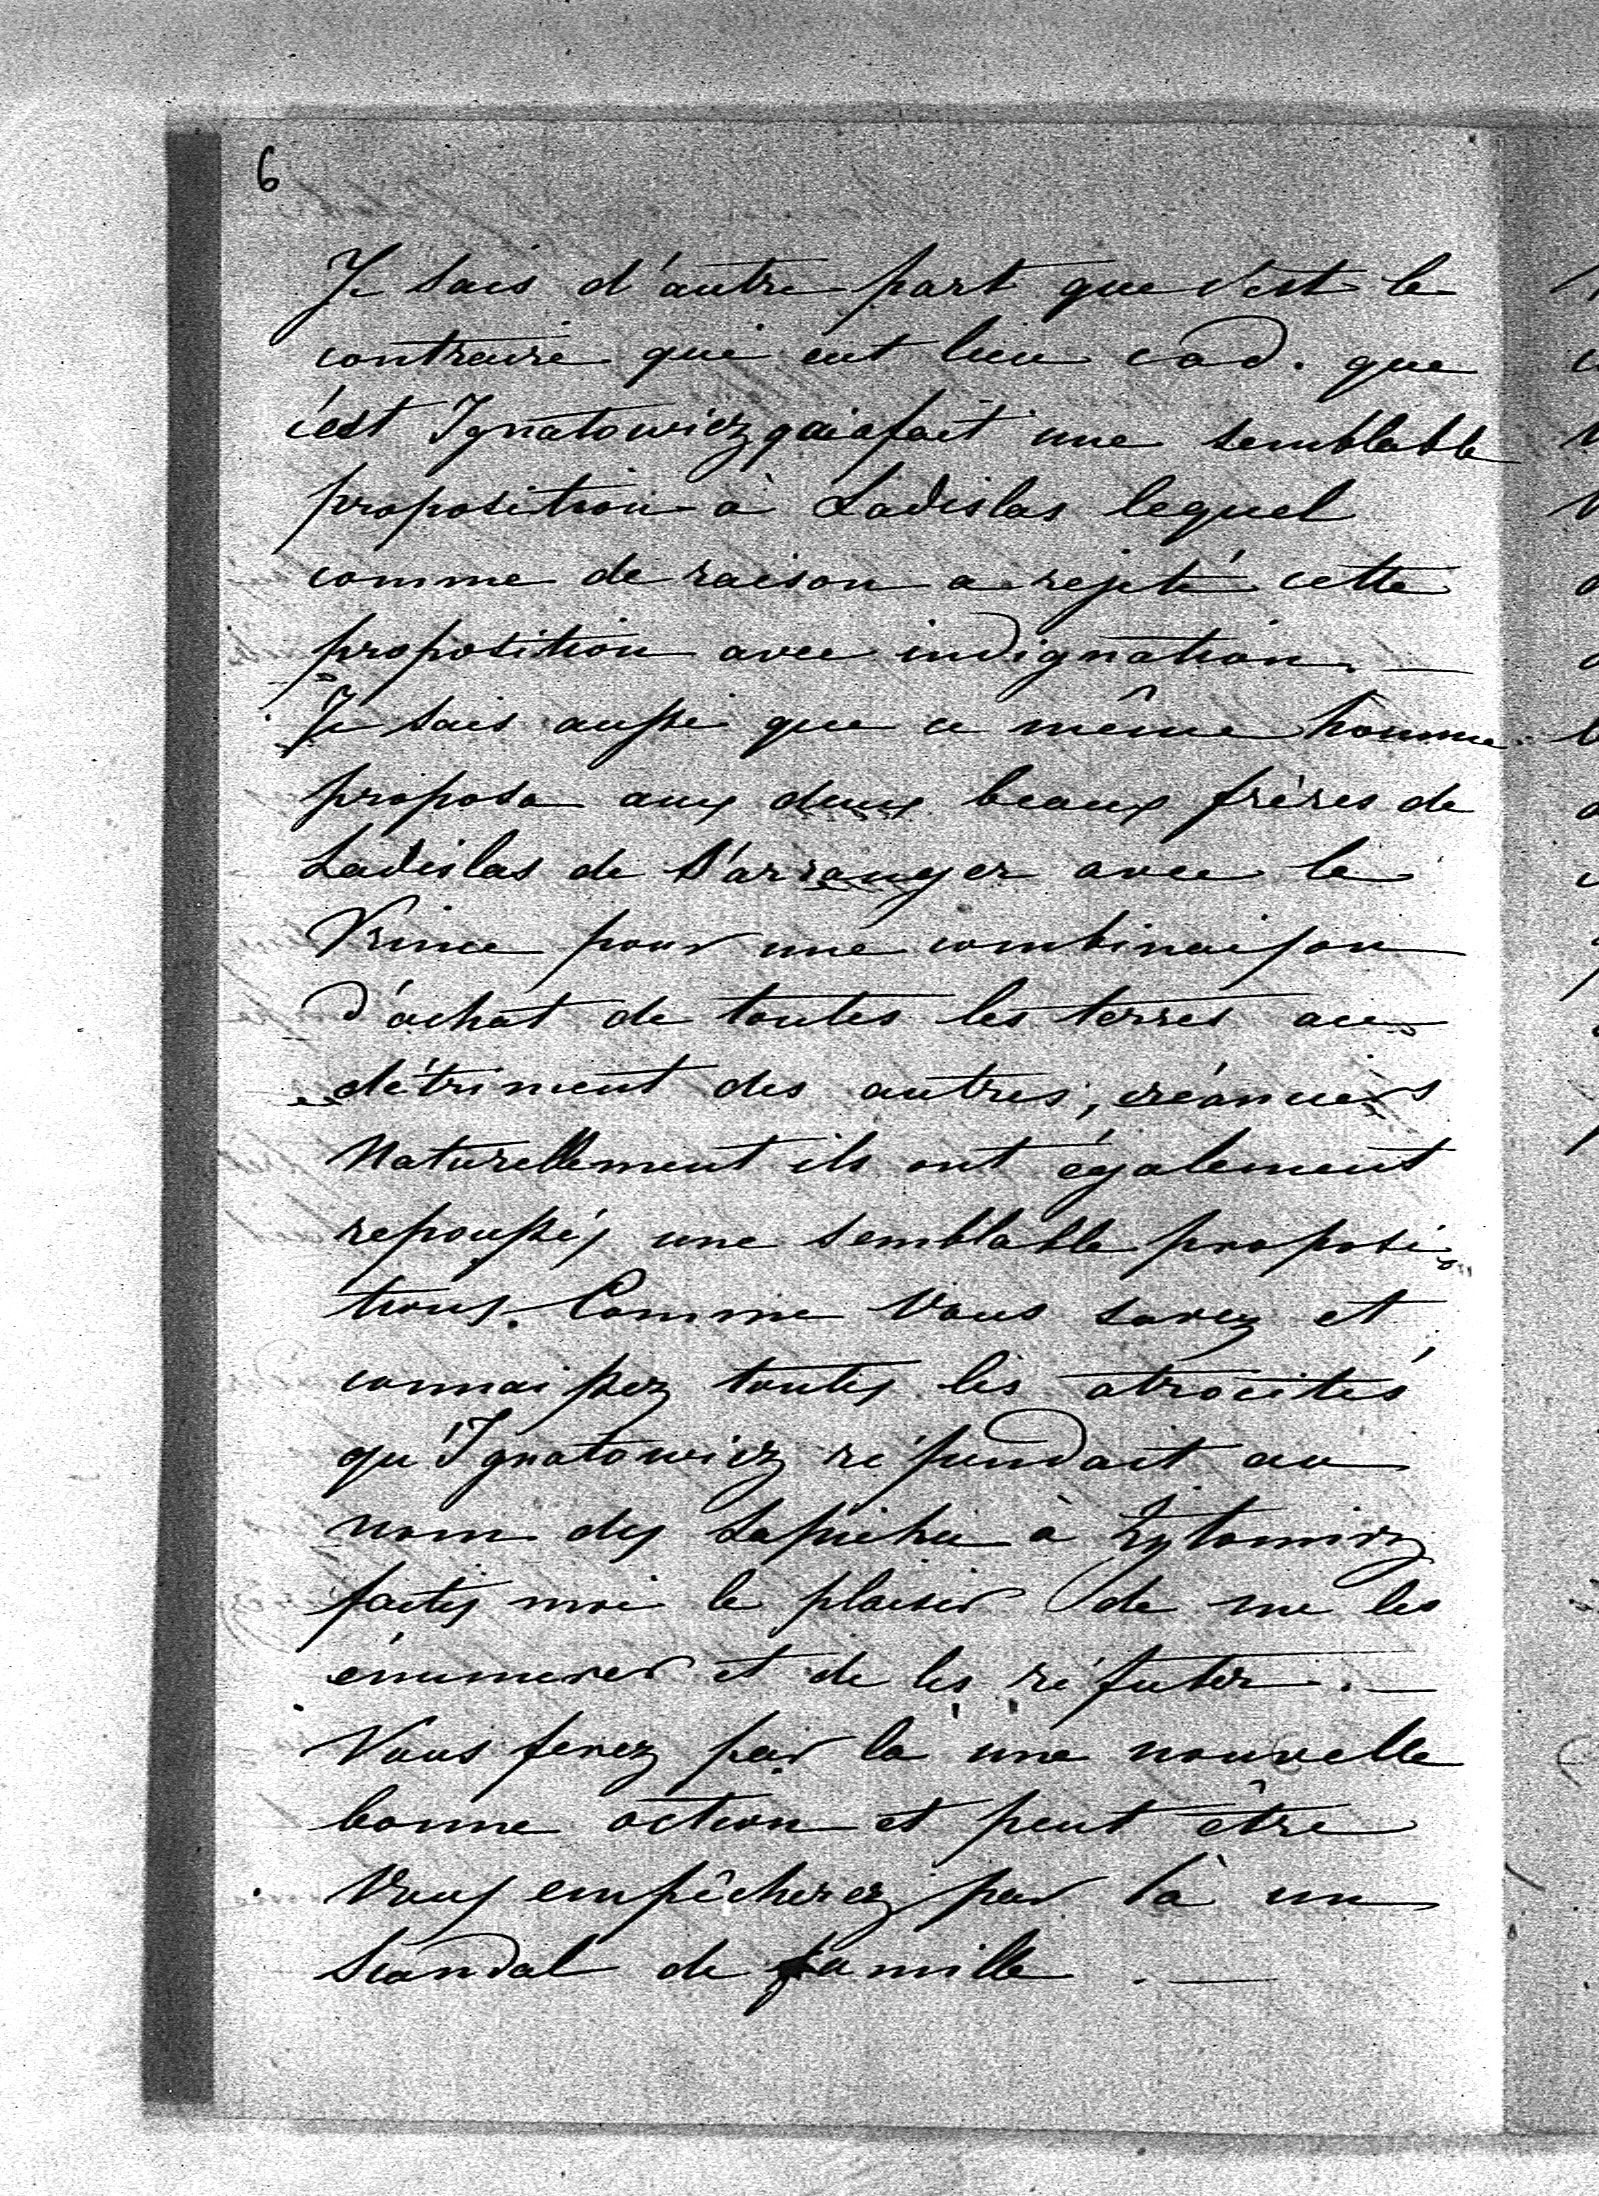 6
Je sais d'autre part que c'est le
contraire qui eut lieu cad. que
c'est Ignatowicz qui a fait une semblable
proposition à Ladislas lequel
comme de raison a rejeté cette
proposition avec indignation. —
Je sais aussi que ce même homme
proposa aux deux beaux frères de
Ladislas de s'arranger avec le
Prince pour une combinaison
d'achat de toutes les terres au
détriment des autres, créanciers
Naturellement ils ont également
repoussés une semblable proposi-
tions. Comme Vous savez et
connaissez toutes les atrocités
qu'Ignatowicz répendait au
nom des Sapieha à Zytomirz
faites moi le plaisir de me les
énumerer et de les réfuter. —
Vous ferez par la une nouvelle
bonne action et peut être
Vous empêcherez par là un
Scandal de famille . —